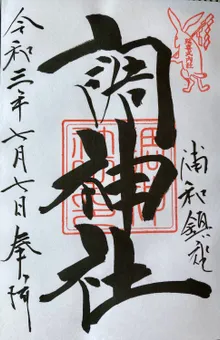 浦和鎮座
調神社
令和三年七月七日奉拝